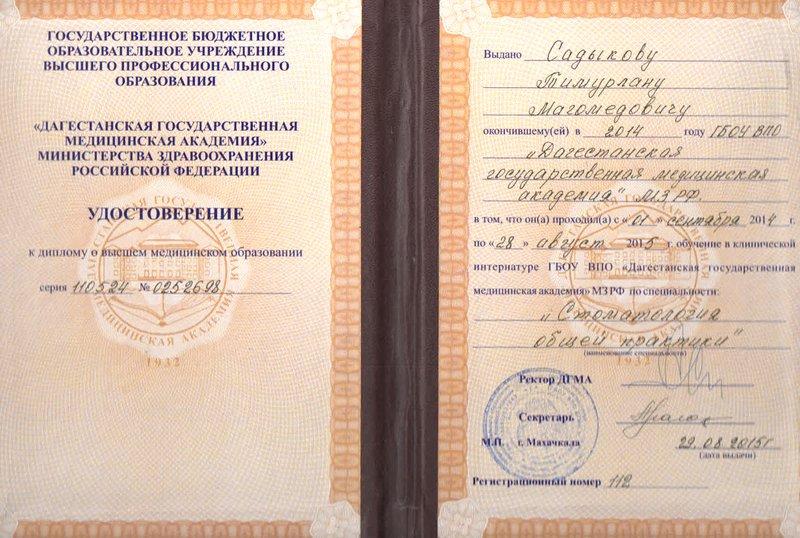 ГОСУДАРСТВЕННОЕ БЮДЖЕТНОЕ
ОБРАЗОВАТЕЛЬНОЕ УЧРЕЖДЕНИЕ
ВЫСШЕГО ПРОФЕССИОНАЛЬНОГО
ОБРАЗОВАНИЯ
«ДАГЕСТАНСКАЯ ГОСУДАРСТВЕННАЯ
МЕДИЦИНСКАЯ АКАДЕМИЯ»
МИНИСТЕРСТВА ЗДРАВООХРАНЕНИЯ
РОССИЙСКОЙ ФЕДЕРАЦИИ
УДОСТОВЕРЕНИЕ
к диплому о высшем медицинском образовании
серия 110524 № 0252698
ДАГЕСТАНСКАЯ ГОСУДАРСТВЕННАЯ
МЕДИЦИНСКАЯ АКАДЕМИЯ
1932
Выдано Садыкову
Тимурлану
Магомедовичу
окончившему(ей) в 2014 году ГБОУ ВПО
„Дагестанская
государственная медицинская
академия" МЗ РФ.
в том, что он(а) проходил(а) с «01» сентября 2014 г.
по «28» август 2015 г. обучение в клинической
интернатуре ГБОУ ВПО «Дагестанская государственная
медицинская академия» МЗ РФ по специальности:
„Стоматология
общей практики"
(наименование специальности)
1932
Ректор ДГМА
Секретарь
М.П. г. Махачкала 29.08.2015г
(дата выдачи)
Регистрационный номер 112